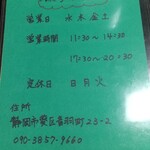 営業日 水木金土
営業時間 11:30〜14:30
17:30〜20:30
定休日 日月火
住所
静岡市葵区音羽町23-2
090-3857-9660